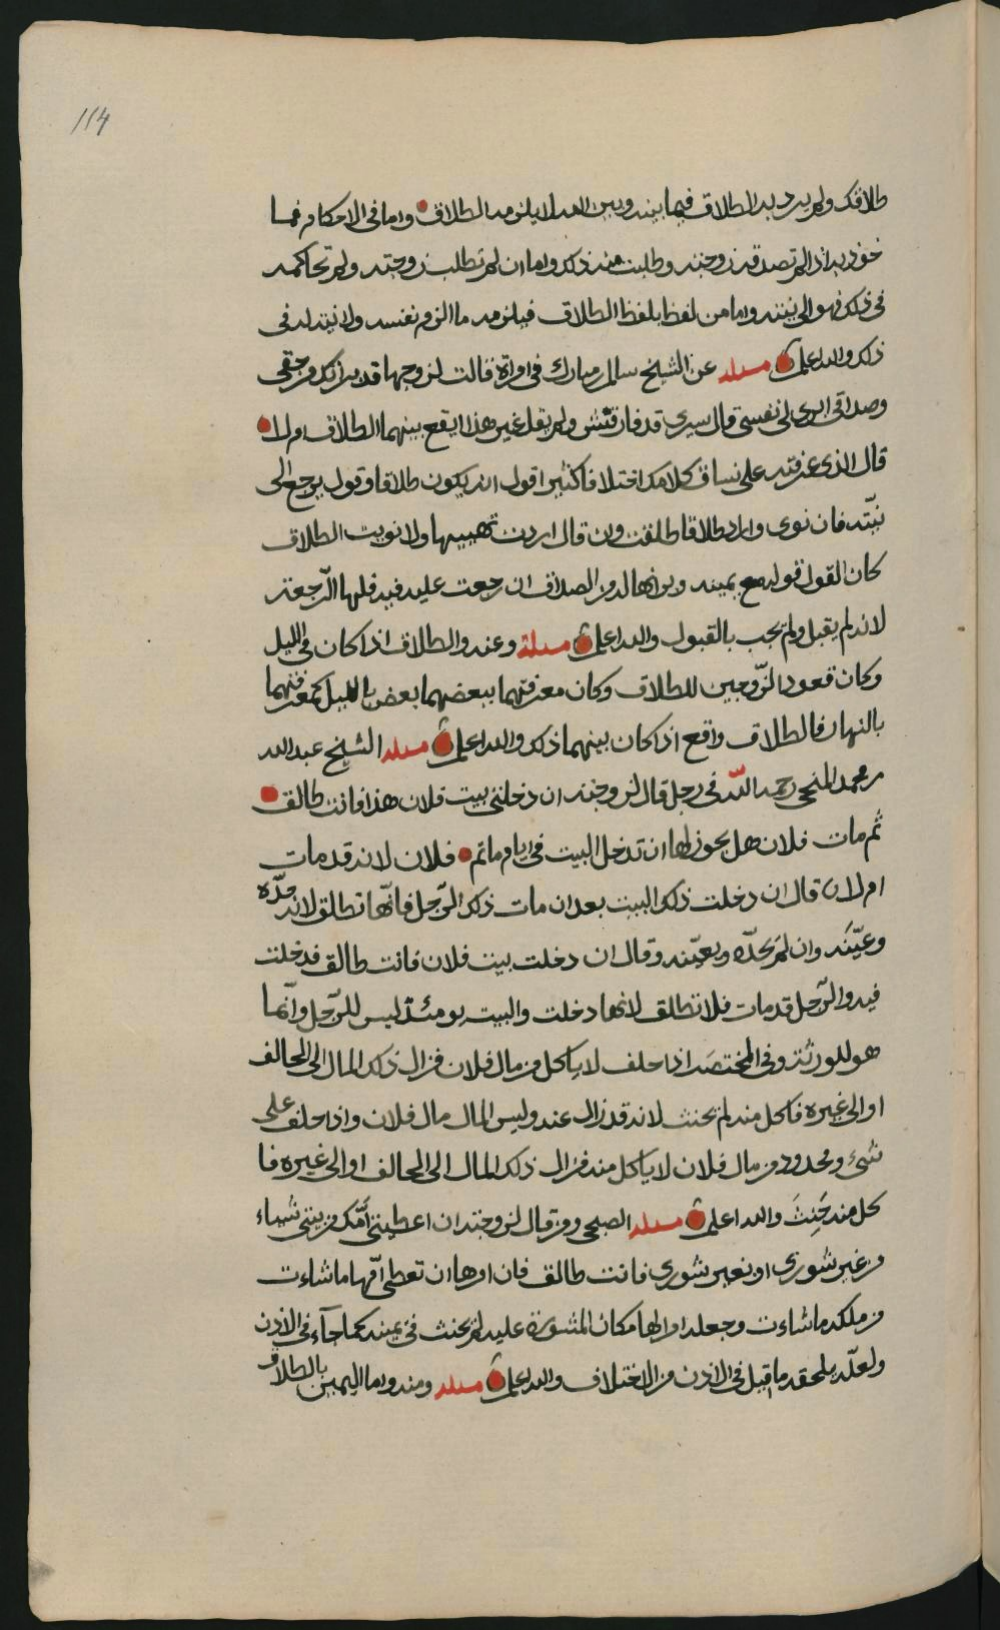 114
طلاقك ولم يرد به الطلاق فيما بينه وبين الله لا يلزمه الطلاق واما في الاحكام فما
خوذ به اذا لم تصدقه زوجته وطلبت منه ذلك واما ان لم تطلب زوجته ولم تحاكمه
في ذلك فهو الى نيته واما من لفظ بلفظ الطلاق فيلزمه ما الزم نفسه ولا نية له في
ذلك والله اعلم مسئله عن الشيخ سالم بن مبارك في امراة قالت لزوجها قد برأتك من حقي
وصداقي ابري لي نفسي قال سيري قد فارقتش ولم يقل غير هذا ايقع بينهما الطلاق ام لا
قال الذي عرفته على نساق كلامك اختلافا كثيرا قول انه يكون طلاقا وقول يرجع الى
نيّته فان نوى واراد طلاقا طلقت ون قال اردت تهييبها ولا نويت الطلاق
كان القول قوله مع يمينه وبرانها له من الصداق ان رجعت عليه فيه فلها الرّجعة
لانه لم يقبل ولم يجب بالقبول والله اعلم مسئلة وعنه والطلاق اذا كان في الليل
وكان قعود الزّوجين للطلاق وكان معرفتهما ببعضهما بعض بالليل كمعرفتهما
بالنهار فالطلاق واقع اذا كان بينهما ذلك والله اعلم مسئله الشيخ عبد الله
بن محمد المنحي رحمه الله في رجل قال لزوجته ان دخلتي بيت فلان هذا فانت طالق
ثم مات فلان هل يجوز لها ان تدخل البيت في ايام ماتم فلان لانه قد مات
ام لا قال ان دخلت ذلك البيت بعد ان مات ذلك الرّجل فانّها تطلق لانه حدّه
وعيّنه وان لم يحدّه ويعيّنه وقال ان دخلت بيت فلان فانت طالق فدخلت
فيه والرّجل قد مات فلا تطلق لانها دخلت والبيت يومئذ ليس للرّجل وانّما
هو للورثة وفي المختصر اذا حلف لا ياكل من مال فلان فزال ذلك المال الى الحالف
او الى غيره فاكل منه لم يحنث لانه قد زال عنه وليس المال مال فلان واذا حلف على
شيء ومحدود من مال فلان لا ياكل منه فزال ذلك المال الى الحالف او الى غيره فا
كل منه حَنِثَ والله اعلم مسئله الصبحي ومن قال لزوجته ان اعطيتي أمّك من بيتي شياء
من غير شوري او بغير شوري فانت طالق فان امرها ان تعطي امّها ما شاءت
من ملكه ما شاءت وجعله امرا لها مكان المشورة عليه لم يحنث في يمينه كما جآء في الاذن
ولعلّه يلحقه ما قيل في الاذن من الاختلاف والله اعلم مسئله ومنه واما اليمين بالطلاق